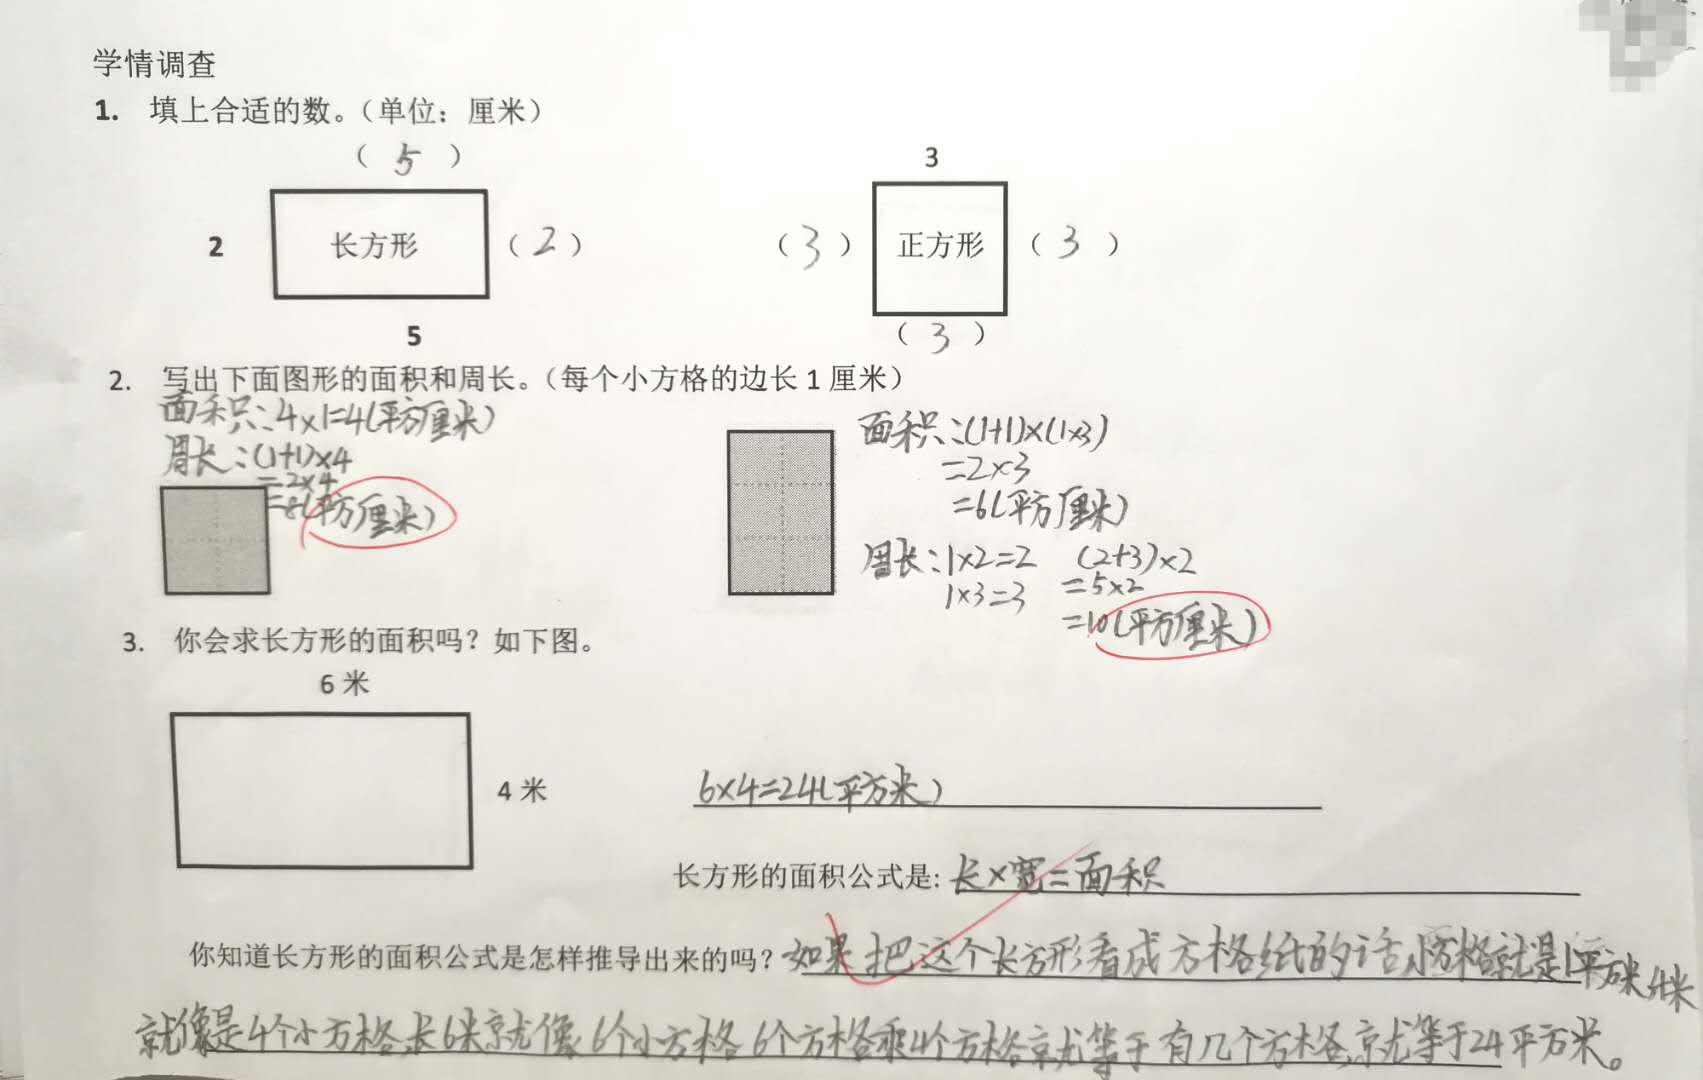 学情调查
1. 填上合适的数。（单位：厘米）
（ 5 ）
3
2 长方形 （ 2 ）
（ 3 ） 正方形 （ 3 ）
5
（ 3 ）
2. 写出下面图形的面积和周长。（每个小方格的边长 1 厘米）
面积：4×1=4(平方厘米)
周长：(1+1)×4
=2×4
=8(平方厘米)
面积：(1+1)×(1×3)
=2×3
=6(平方厘米)
周长：1×2=2 (2+3)×2
1×3=3 =5×2
=10(平方厘米)
3. 你会求长方形的面积吗？如下图。
6 米
4 米
6×4=24(平方米)
长方形的面积公式是: 长×宽=面积
你知道长方形的面积公式是怎样推导出来的吗？如果把这个长方形看成方格纸的话,小方格就是1平方米,4米
就像是4个小方格,长6米就像6个小方格,6个方格乘4个方格就等于有几个方格,就等于24平方米。